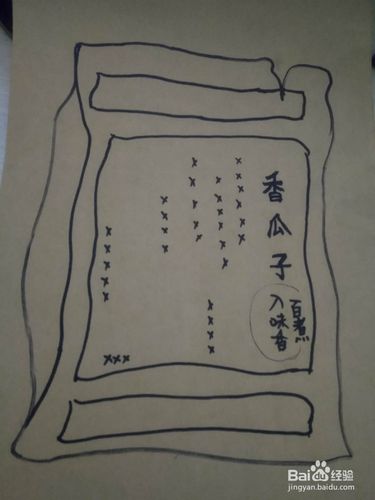 香瓜子
百煮
入味香
×××
Baidu经验
jingyan.baidu.com